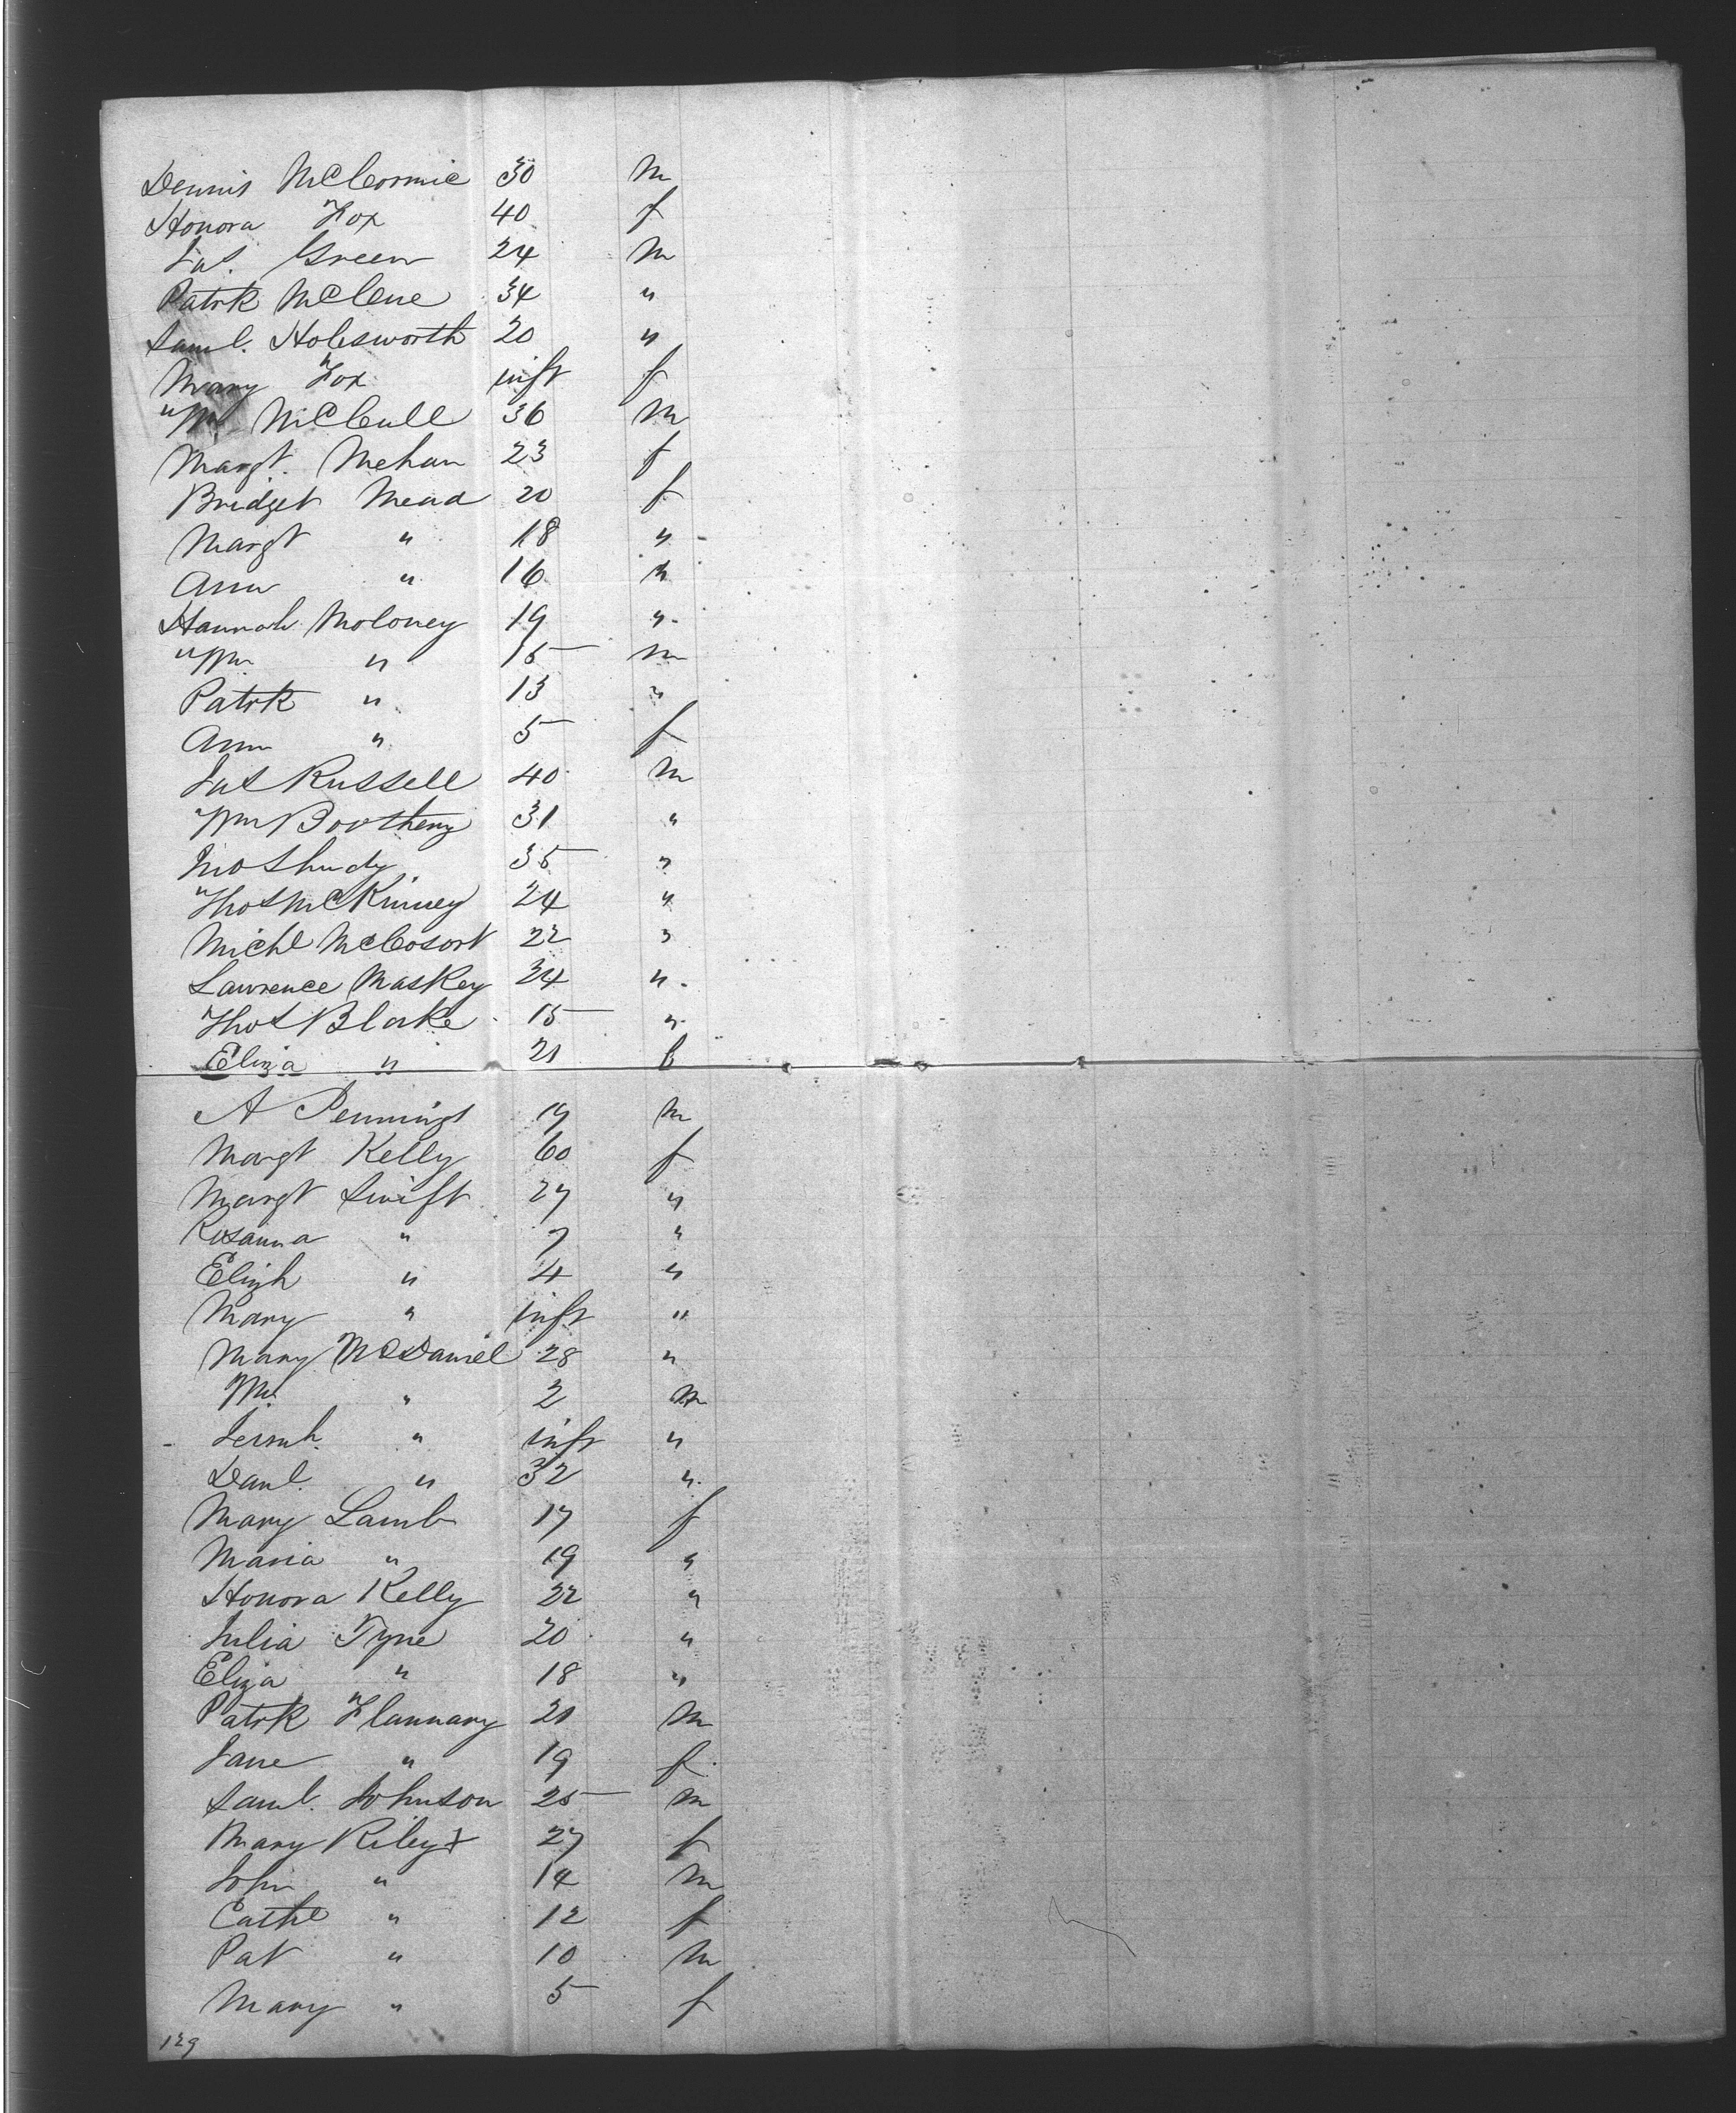 Dennis McCormic 30 m
Honora Fox 40 f
Jas. Green 24 m
Patrk McClue 34 "
Saml. Holesworth 20 "
Mary Fox inft f
Wm McCull 36 m
Margt. Mehan 23 f
Bridget Mead 20 f
Margt " 18 "
Ann " 16 "
Hannah Moloney 19 "
Wm " 15 m
Patrk " 13 "
Ann " 5 f
Jas Russell 40 m
Wm Bootheny 31 "
Jno Shudy 35 "
Thos McKinney 24 "
Michl McCosort 22 "
Lawrence Maskey 34 "
Thos Blake 15 "
Eliza " 21 f
A Pennings 19 m
Margt Kelly 60 f
Margt Swift 27 "
Rosanna " 7 "
Elizh " 4 "
Mary " inft "
Mary McDaniel 28 "
Wm " 2 m
Jermh. " inft "
Danl. " 32 "
Mary Lamb 17 f
Maria " 19 "
Honora Kelly 22 "
Julia Tyne 20 "
Eliza " 18 "
Patrk Flannary 21 m
Jane " 19 f
Saml. Johnson 25 m
Mary Riley + 27 f
John " 14 m
Cathe " 12 f
Pat " 10 m
Mary " 5 f
129